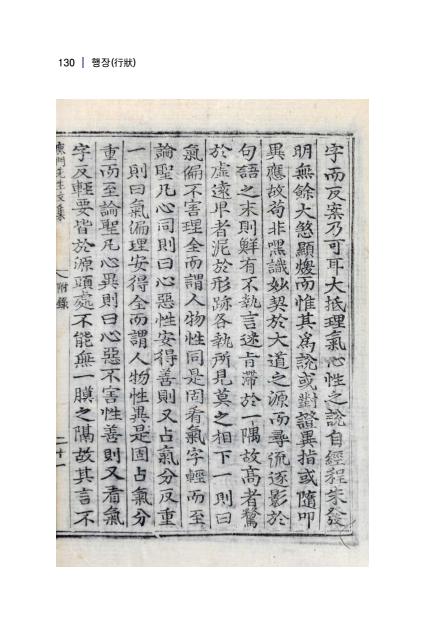 130 | 행장(行狀)
字而反案乃可耳大抵理氣心性之說自經程朱發
明無餘大煞顯煥而惟其爲說或對證異指或隨叩
異應故苟非黑識妙契於大道之源而尋流逐影於
句語之末則鮮有不執言迷肯滯於一隅故高者騖
於虛遠卑者泥於形跡各執所見莫之相下一則曰
氣偏不害理全而謂人物性同是固看氣字輕而至
論聖凡心同則曰心惡性安得善則又占氣分反重
一則曰氣偏理安得全而謂人物性異是固占氣分
重而至論聖凡心異則曰心惡不害性善則又看氣
字反輕要皆於源頭處不能無一膜之隔故其言不
附錄
二十一